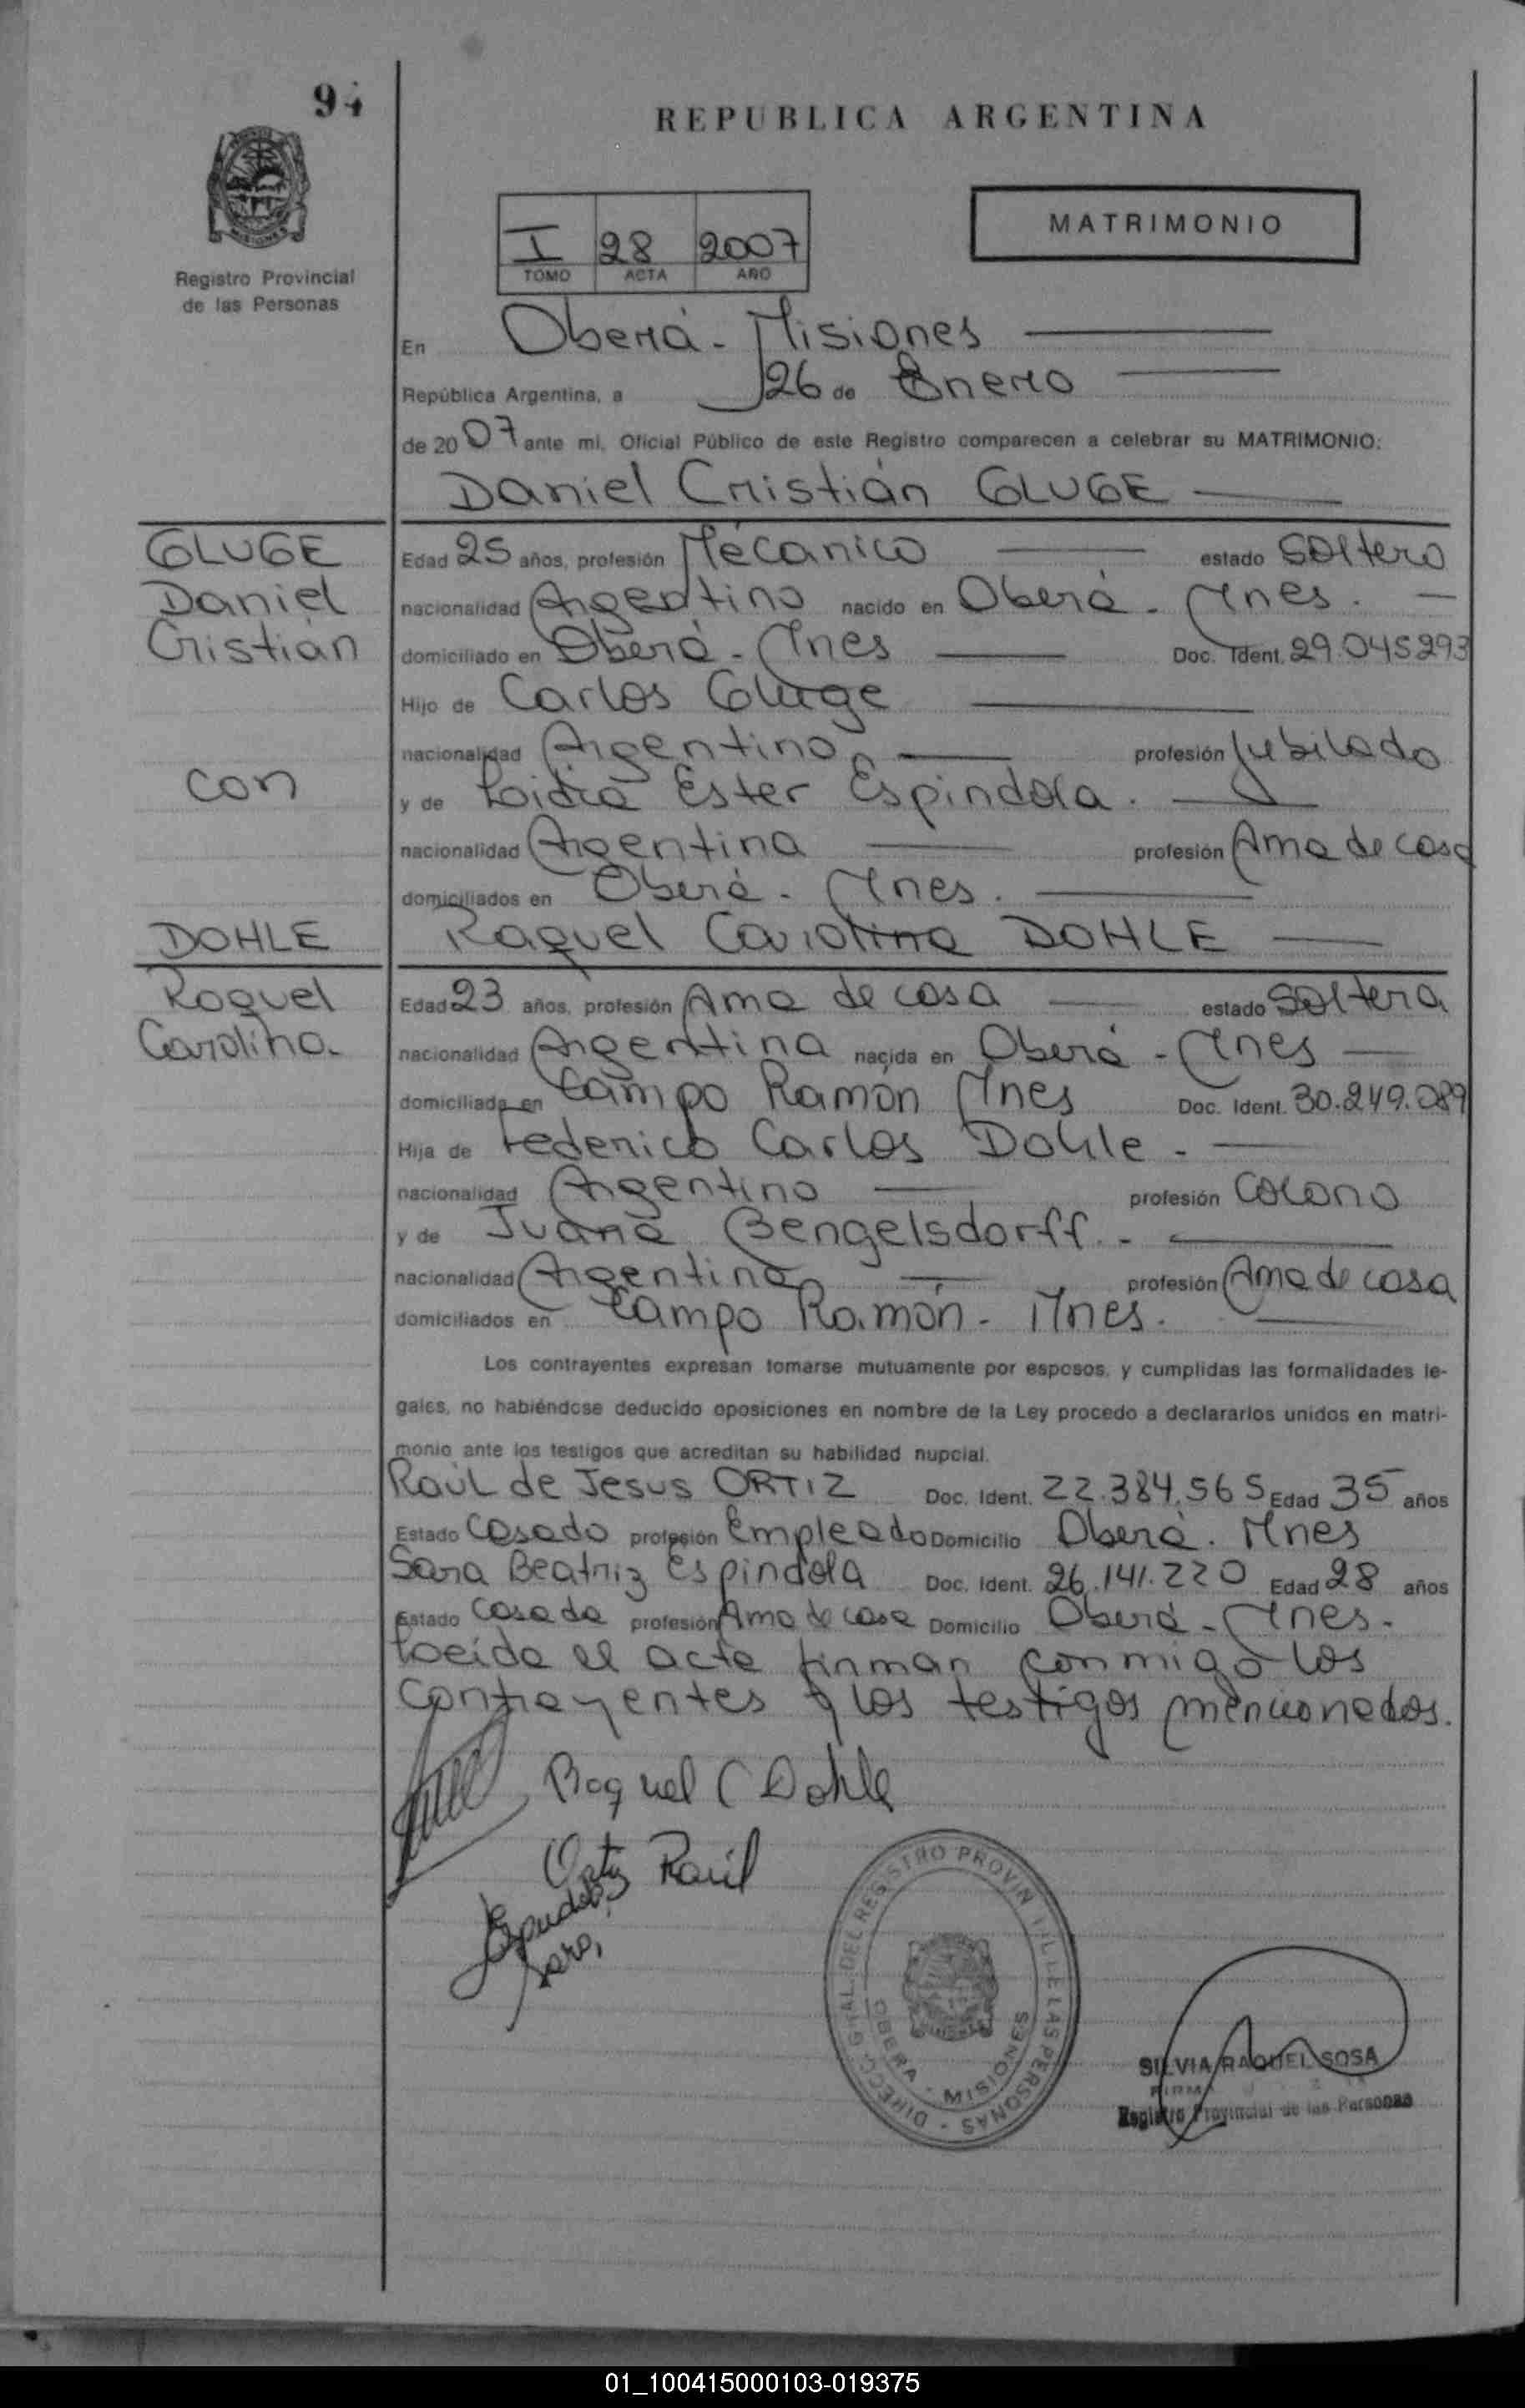 94
REPUBLICA ARGENTINA
MATRIMONIO
I 28 2007
TOMO ACTA AÑO
Registro Provincial
de las Personas
En Oberá - Misiones
República Argentina, a 26 de Enero
de 2007 ante mí, Oficial Público de este Registro comparecen a celebrar su MATRIMONIO:
Daniel Cristián GLUGE
GLUGE
Daniel
Cristián
con
DOHLE
Raquel
Carolina.
Edad 25 años, profesión Mécanico estado Soltero
nacionalidad Argentino nacido en Oberá - Mnes.
domiciliado en Oberá - Mnes Doc. Ident. 29.045293
Hijo de Carlos Gluge
nacionalidad Argentino profesión Jubilado
y de Lidia Ester Espindola.
nacionalidad Argentina profesión Ama de casa
domiciliados en Oberá - Mnes.
Raquel Carolina DOHLE
Edad 23 años, profesión Ama de casa estado Soltera
nacionalidad Argentina nacida en Oberá - Mnes
domiciliada en Campo Ramón Mnes Doc. Ident. 30.249.089
Hija de Federico Carlos Dohle -
nacionalidad Argentino profesión Colono
y de Juana Bengelsdorff. -
nacionalidad Argentina profesión Ama de casa
domiciliados en Campo Ramón - Mnes.
Los contrayentes expresan tomarse mutuamente por esposos, y cumplidas las formalidades le-
gales, no habiéndose deducido oposiciones en nombre de la Ley procedo a declararlos unidos en matri-
monio ante los testigos que acreditan su habilidad nupcial.
Raúl de Jesus ORTIZ Doc. Ident. 22.384.565 Edad 35 años
Estado Casado profesión Empleado Domicilio Oberá. Mnes
Sara Beatriz Espindola Doc. Ident. 26.141.220 Edad 28 años
Estado Casada profesión Ama de casa Domicilio Oberá - Mnes.
Leída el acta firman conmigo los
contrayentes y los testigos mencionados.
Raquel C Dohle
Ortiz Raúl
Espindola
Sara,
DIRECC. GRAL. DEL REGISTRO PROVINCIAL DE LAS PERSONAS
OBERA - MISIONES
SILVIA RAQUEL SOSA
Registro Provincial de las Personas
01_100415000103-019375